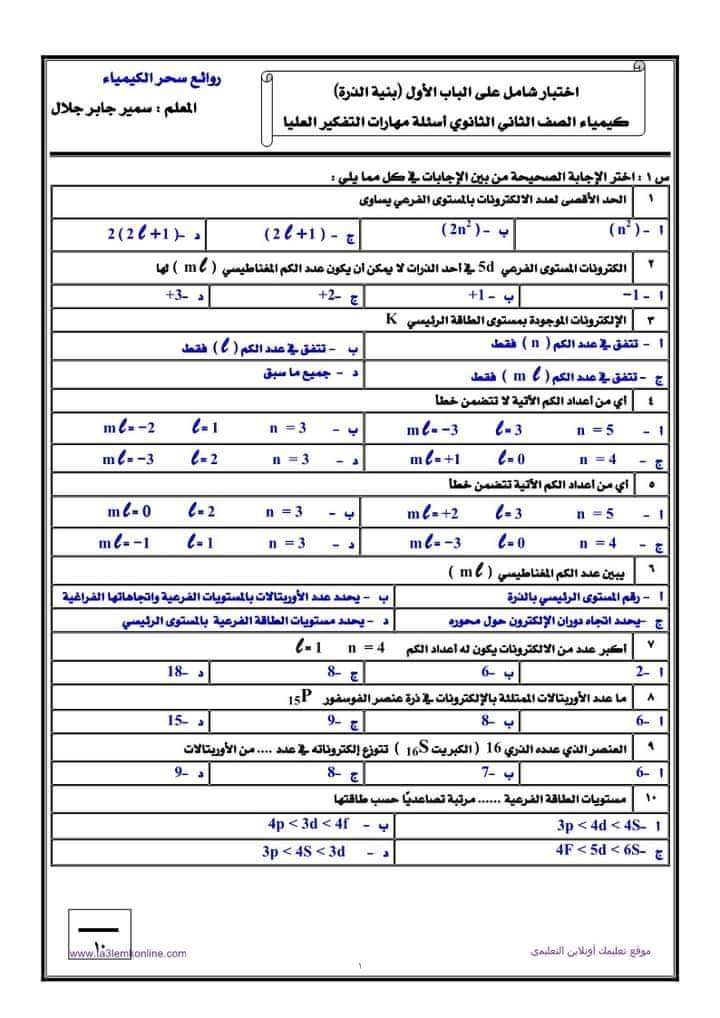 روائع سحر الكيمياء
المعلم : سمير جابر جلال
اختبار شامل على الباب الأول (بنية الذرة)
كيمياء الصف الثاني الثانوي أسئلة مهارات التفكير العليا
س ١ : اختر الإجابة الصحيحة من بين الإجابات في كل مما يلي :
١ الحد الأقصى لعدد الالكترونات بالمستوى الفرعي يساوى
أ - ( n² ) ب - ( 2n² ) ج - ( 2 ℓ +1 ) د - 2 ( 2 ℓ +1 )
٢ الكترونات المستوى الفرعي 5d في أحد الذرات لا يمكن أن يكون عدد الكم المغناطيسي ( mℓ ) لها
أ - 1− ب - 1+ ج - 2+ د - 3+
٣ الإلكترونات الموجودة بمستوى الطاقة الرئيسي K
أ - تتفق في عدد الكم ( n ) فقط ب - تتفق في عدد الكم ( ℓ ) فقط
ج - تتفق في عدد الكم ( mℓ ) فقط د - جميع ما سبق
٤ أي من أعداد الكم الأتية لا تتضمن خطأ
أ - n = 5 ℓ= 3 mℓ= −3 ب - n = 3 ℓ= 1 mℓ= −2
ج - n = 4 ℓ= 0 mℓ= +1 د - n = 3 ℓ= 2 mℓ= −3
٥ أي من أعداد الكم الأتية تتضمن خطأ
أ - n = 5 ℓ= 3 mℓ= +2 ب - n = 3 ℓ= 2 mℓ= 0
ج - n = 4 ℓ= 0 mℓ= −3 د - n = 3 ℓ= 1 mℓ= −1
٦ يبين عدد الكم المغناطيسي ( mℓ )
أ - رقم المستوى الرئيسي بالذرة ب - يحدد عدد الأوربيتالات بالمستويات الفرعية واتجاهاتها الفراغية
ج - يحدد اتجاه دوران الإلكترون حول محوره د - يحدد مستويات الطاقة الفرعية بالمستوى الرئيسي
٧ أكبر عدد من الالكترونات يكون له أعداد الكم n = 4 ℓ= 1
أ - 2 ب - 6 ج - 8 د - 18
٨ ما عدد الأوربيتالات الممتلئة بالإلكترونات في ذرة عنصر الفوسفور ₁₅P
أ - 6 ب - 8 ج - 9 د - 15
٩ العنصر الذي عدده الذري 16 ( الكبريت ₁₆S ) تتوزع إلكتروناته في عدد .... من الأوربيتالات
أ - 6 ب - 7 ج - 8 د - 9
١٠ مستويات الطاقة الفرعية ...... مرتبة تصاعديًا حسب طاقتها
أ - 3p < 4d < 4S ب - 4p < 3d < 4f
ج - 4F < 5d < 6S د - 3p < 4S < 3d
١٠
www.ta3lemkonline.com
موقع تعليمك أونلاين التعليمى
١